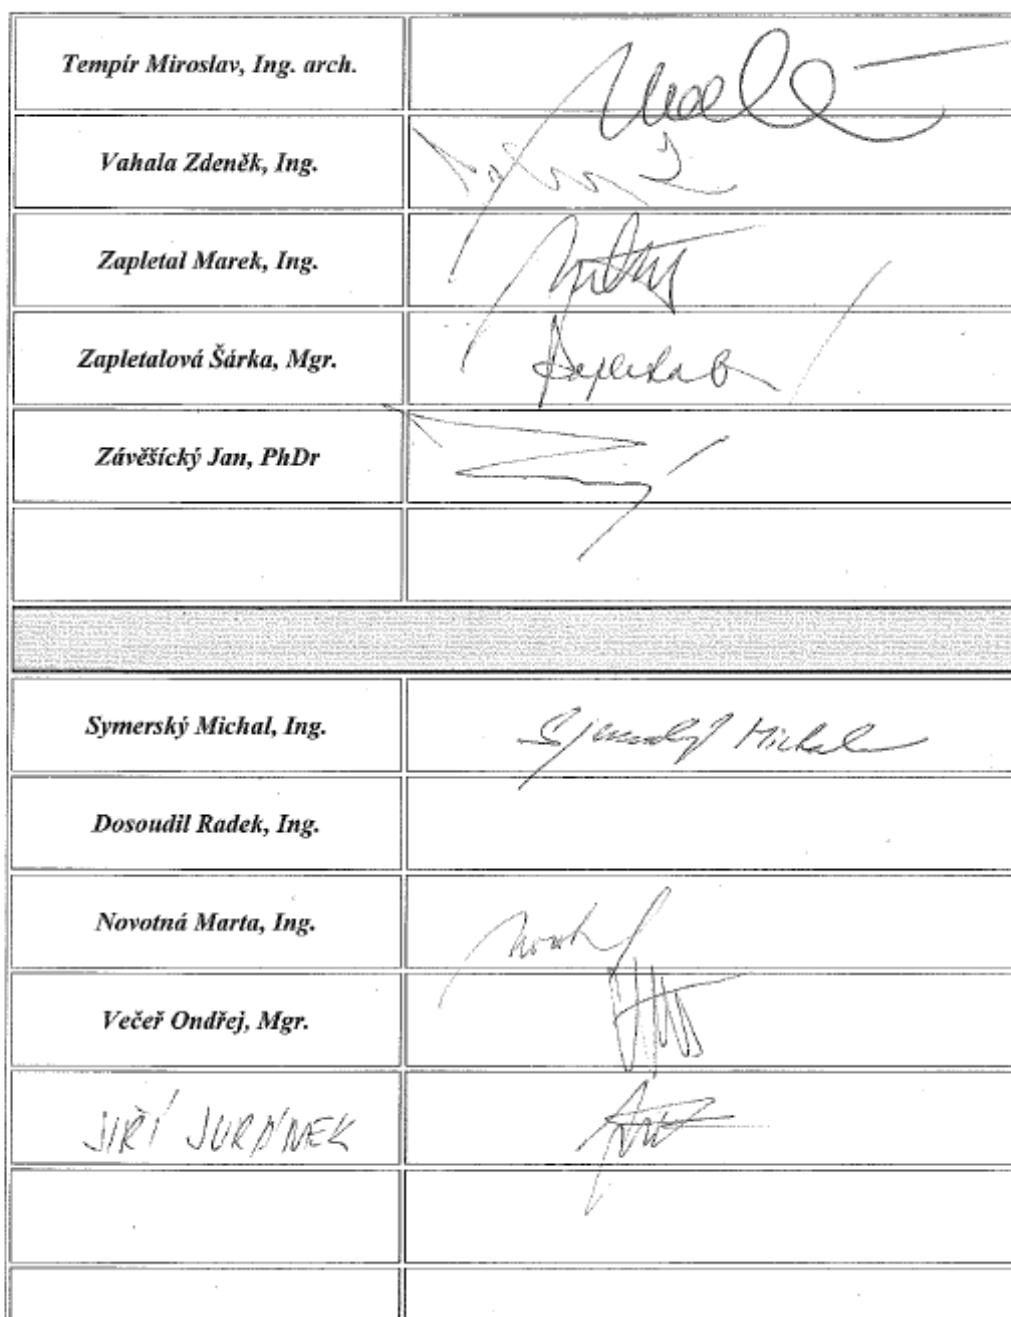 Tempír Miroslav, Ing. arch.
Vahala Zdeněk, Ing.
Zapletal Marek, Ing.
Zapletalová Šárka, Mgr.
Závěšícký Jan, PhDr
Symerský Michal, Ing.
Michal
Dosoudil Radek, Ing.
Novotná Marta, Ing.
Večeř Ondřej, Mgr.
JIŘÍ JURÁNEK